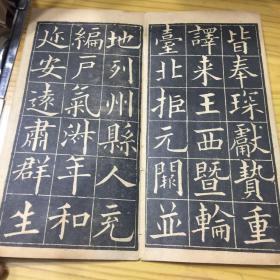 皆奉琛獻贄重
譯来王西暨輪
臺北拒元闕並
地列州縣人充
編戶氣淑年和
近安遠肅群生